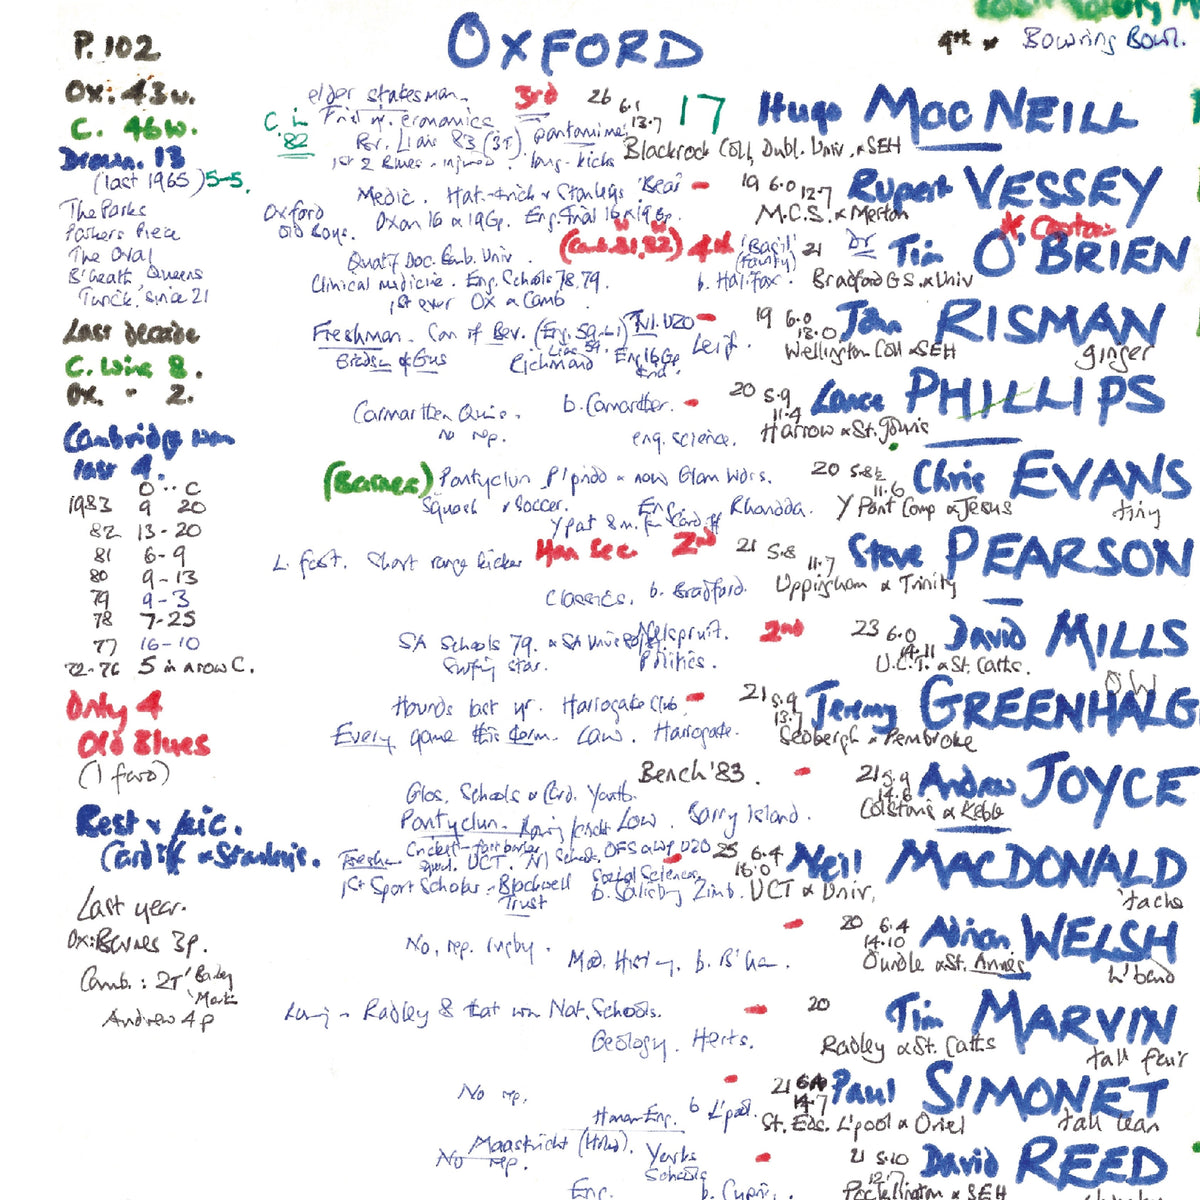 OXFORD
Bowring Bowl.
P. 102
Ox: 43w.
C. 46w.
Drawn. 13
(last 1965) 5-5.
The Parks
Parkers Piece
The Oval
B'heath Queens
Twick. since 21
Last decade
C. wins 8.
Ox. " 2.
Cambridge won
last 4.
O .. C
1983 9 20
82 13-20
81 6-9
80 9-13
79 9-3
78 7-25
77 16-10
72-76 5 in a row C.
Only 4
Old Blues
(1 forw)
Best v
Cardiff & Stanleys.
Last year.
Ox: Barnes 3p.
Camb.: 2T Bailey
Martin
Andrew 4p
elder statesman. 3rd 26 6.1 13.7 17 Hugo MacNEILL
C. L. 82 economics pantomime
Br. Lions 83 (3T)
1st 2 Blues - injured. long-kicks Blackrock Coll, Dubl. Univ. & SEH
Medic. Hat-trick v Stanleys 'Bear' 19 6.0 12.7 Rupert VESSEY
Oxford Old Boys. Oxon 16 & 19 Gp. Eng. final 16 & 19 Gp. M.C.S. & Merton
(Camb. 81, 82) 4th 'Basil' (Fawlty) 21 Dr Tim O'BRIEN
* Captain
Doc. Camb. Univ.
Clinical medicine. Eng. Schools 78.79. b. Halifax. Bradford G.S. & Univ
1st ever Ox & Camb
Freshman. Son of Bev. (Eng. 59-61) U20 19 6.0 13.0 John RISMAN
Lions 59. Richmond Eng 16 Gp Leic. Wellington Coll & SEH ginger
Carmarthen Quins. b. Carmarthen. 20 5.9 11.4 Lance PHILLIPS
no rep. eng. science. Harrow & St. Johns
(Barnes) Pontyclun P'pridd & now Glam Wdrs. 20 5.8½ 11.6 Chris EVANS
Squash & soccer. Eng. Rhondda. Y Pant Comp & Jesus tiny
Y Pant 8 m. fr Cardiff
L. foot. Short range kicker Hon Sec 2nd 21 5.8 11.7 Steve PEARSON
Classics. b. Bradford. Uppingham & Trinity
SA Schools 79. & SA Univ Nelspruit. 2nd 23 6.0 14.11 David MILLS
Surfing star. Politics. U.C.T. & St. Catts.
Hounds last yr. Harrogate Club. 21 5.9 13.7 Jeremy GREENHALG
Every game this term. Law. Harrogate. Sedbergh & Pembroke
Bench '83. 21 5.9 14.6 Andrew JOYCE
Glos. Schools & Card. Youth. Colstons & Keble
Pontyclun. Law. Barry Island.
Cricket 25 6.4 16.0 Neil MACDONALD
UCT. OFS U20 Social Sciences
1st Sport Scholar - Blackwell Trust b. Salisbury Zimb. UCT & Univ. 'tache
20 6.4 14.10 Adrian WELSH
No. rep. rugby. Mod. History. b. B'ham. Oundle & St. Annes h'band
Radley 8 that won Nat. Schools. 20 Tim MARVIN
Geology. Herts. Radley & St. Catts tall fair
No rep. 21 6.4 14.7 Paul SIMONET
Human Eng. b L'pool. St. Eds. L'pool & Oriel tall lean
Maastricht (Holl). Yorks Schools 21 5.10 12.7 David REED
No rep.
Eng. b. Cupri. Pocklington & SEH